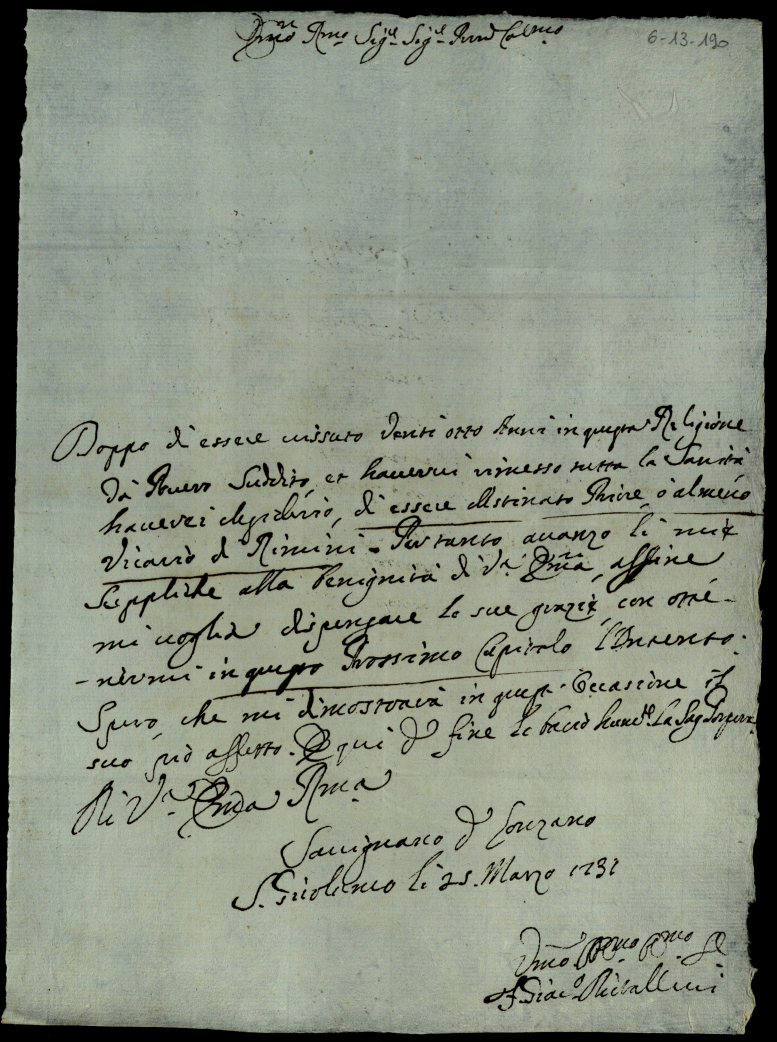 Emo Rmo Sig.r Sig.r Pron Colmo
6-13-190
Doppo di essere vissuto venti otto Anni in questa Religione
da Povero Suddito, et havervi rimesso tutta la Sanità
haverei desiderio, di essere destinato Priore, o almeno
Vicario di Rimini. Pertanto avanzo le mie
suppliche alla benignità di V.a Emza, affine
mi voglia dispensare le sue grazie, con otte-
-nermi in questo Prossimo Capitolo l'Intento.
Spero che mi dimostrarà in questa Occasione il
suo più affetto. E qui di fine le bacio la Sag. Porpora
Di V.a Emza Rma
Savignano di
S. Girolamo li 25. Marzo 1731
Umo
F. Giac.o